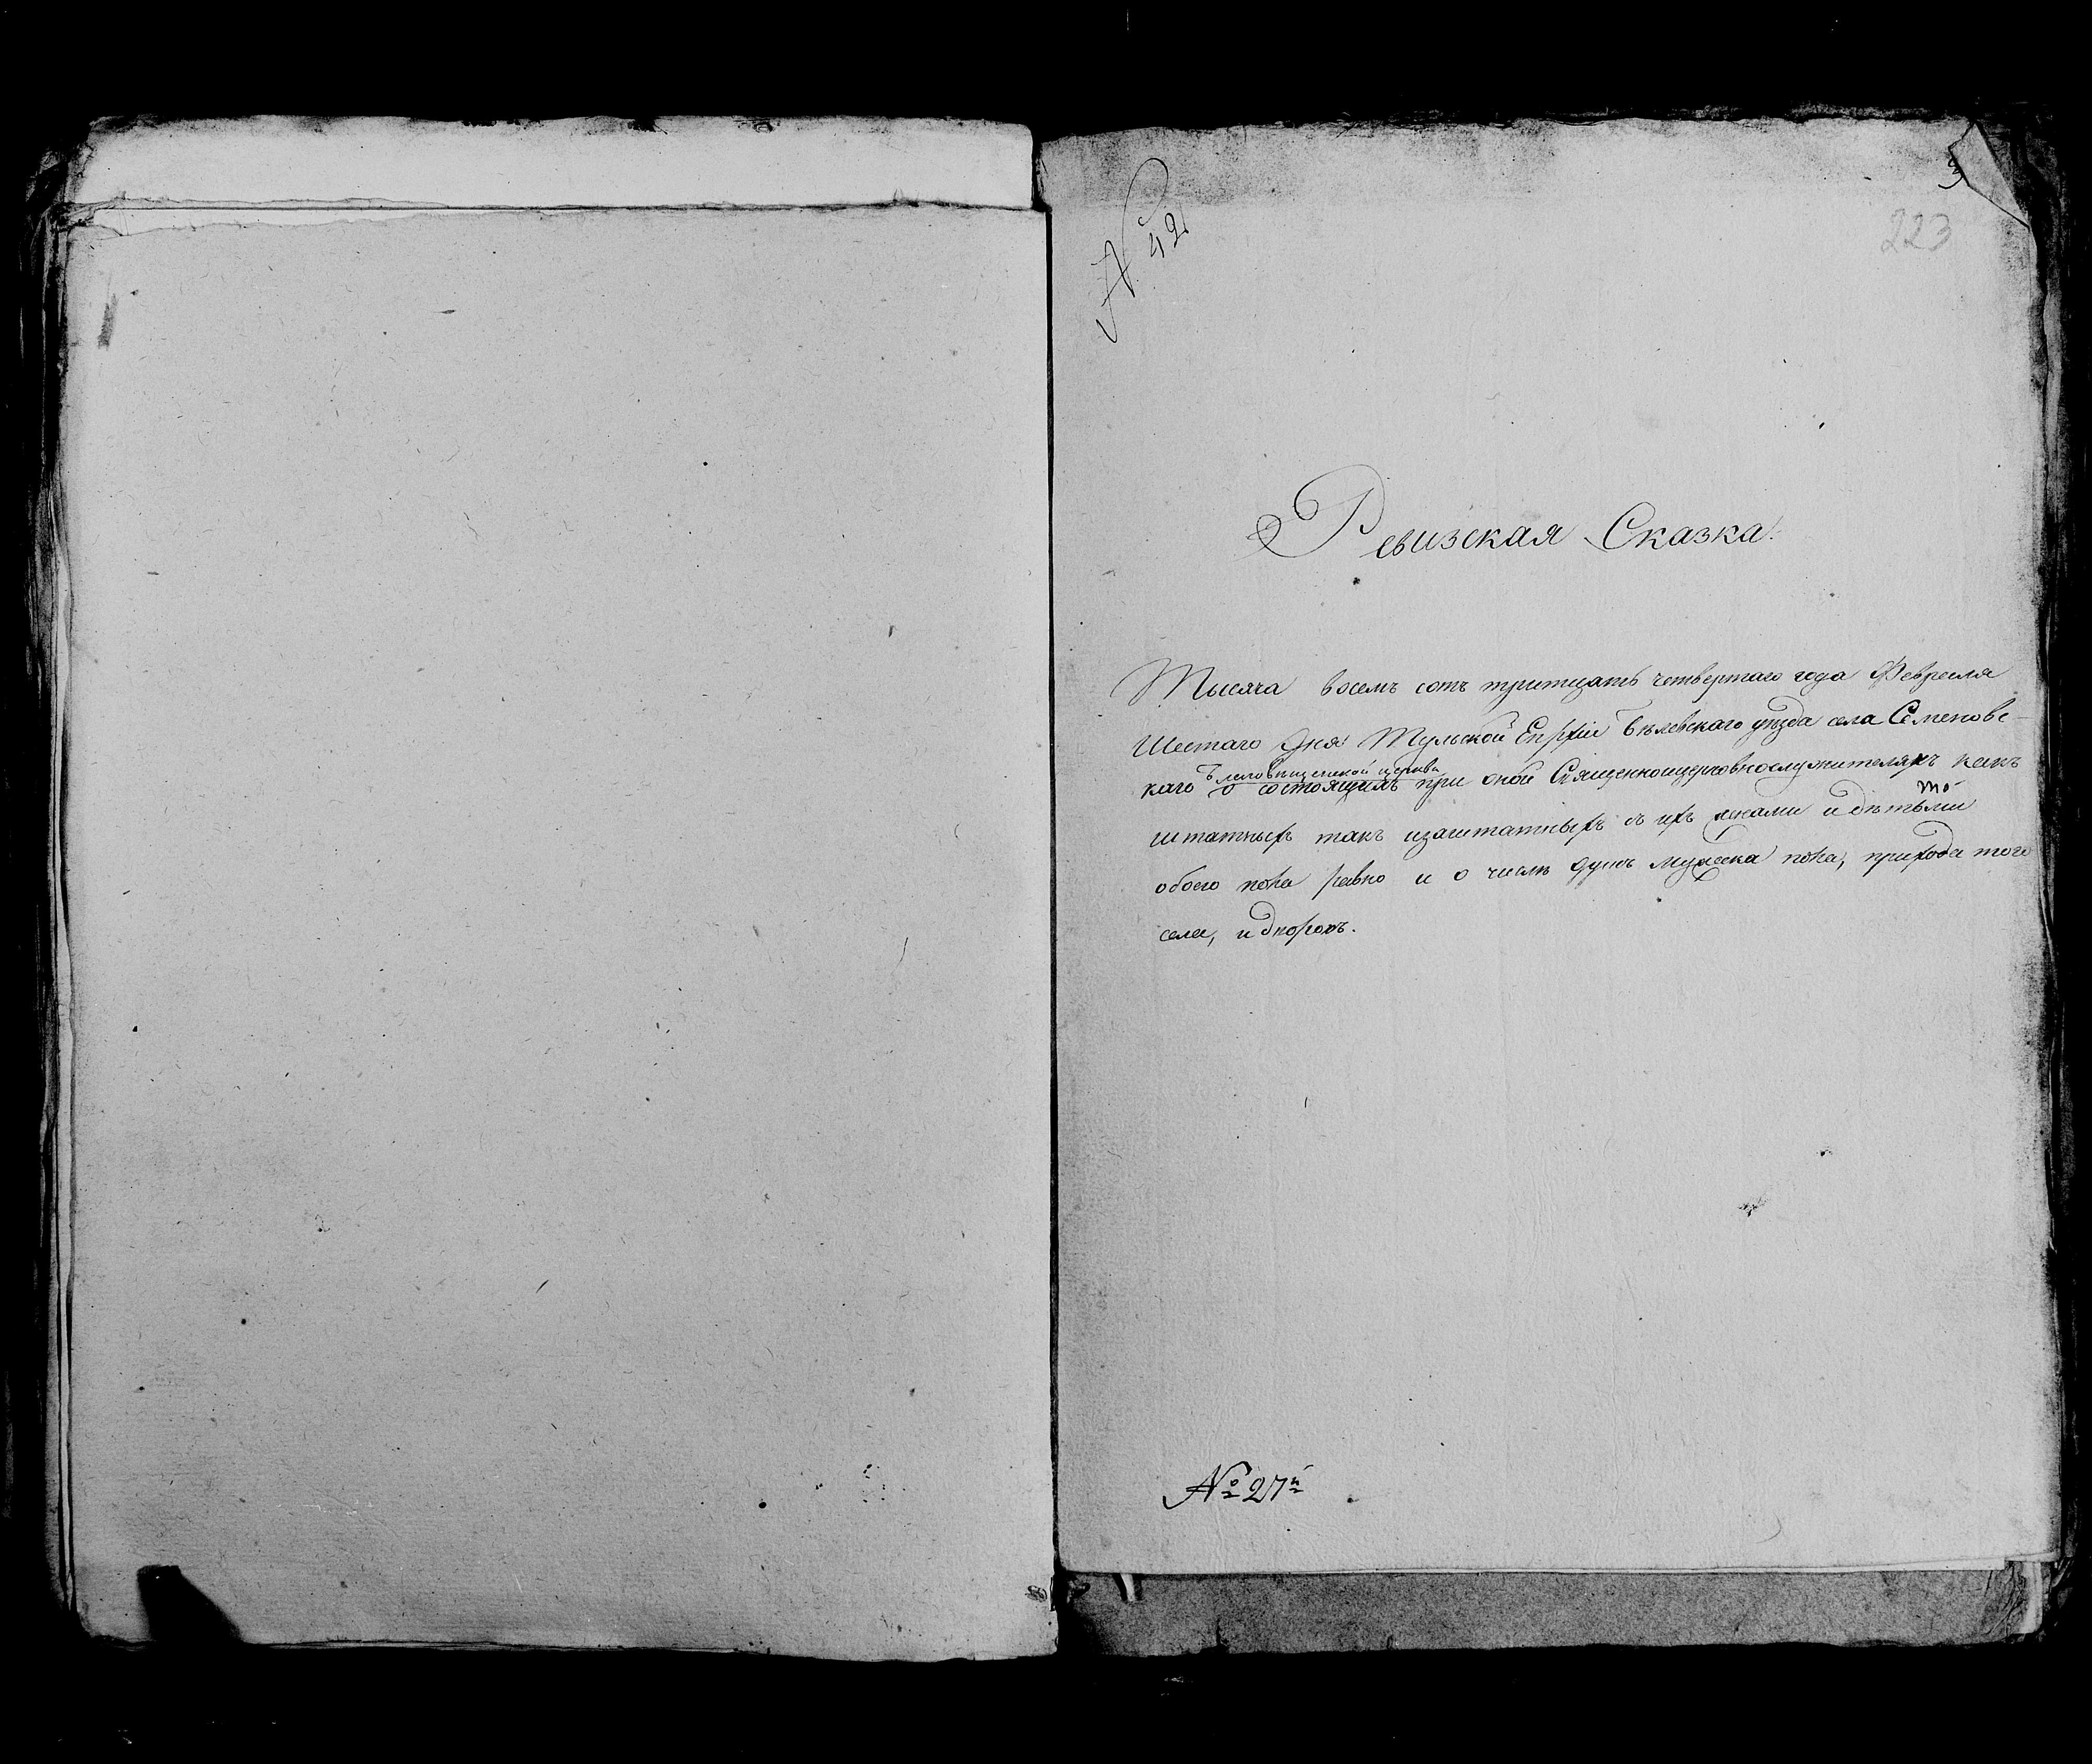 № 42
223
Ревизская Сказка.
Тысяча восемь сотъ тритцать четвертаго года Февраля
Шестаго дня Тульской Епрхіи Бѣлевскаго уѣзда села Семеновс-
Благовѣщенской церкви
каго о состоящихъ при оной Священноцерковнослужителяхъ какъ
то
штатныхъ такъ изаштатныхъ съ ихъ женами идѣтьми
обоего пола равно и о числѣ душъ мужеска пола, прихода того
села, идворовъ.
№ 27й